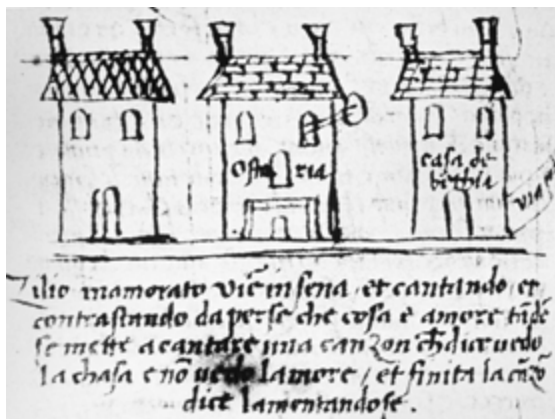 Osteria
casa de
bethia
via
ilio inamorato viẽ in sena, et cantando, et
contrastando da per se che cosa e amore tãdẽ
se mette a cantare una canzon ch̃ dice vedo
la chasa e nõ vedo lamore, et finita la cãzõ
dice lamentandose.